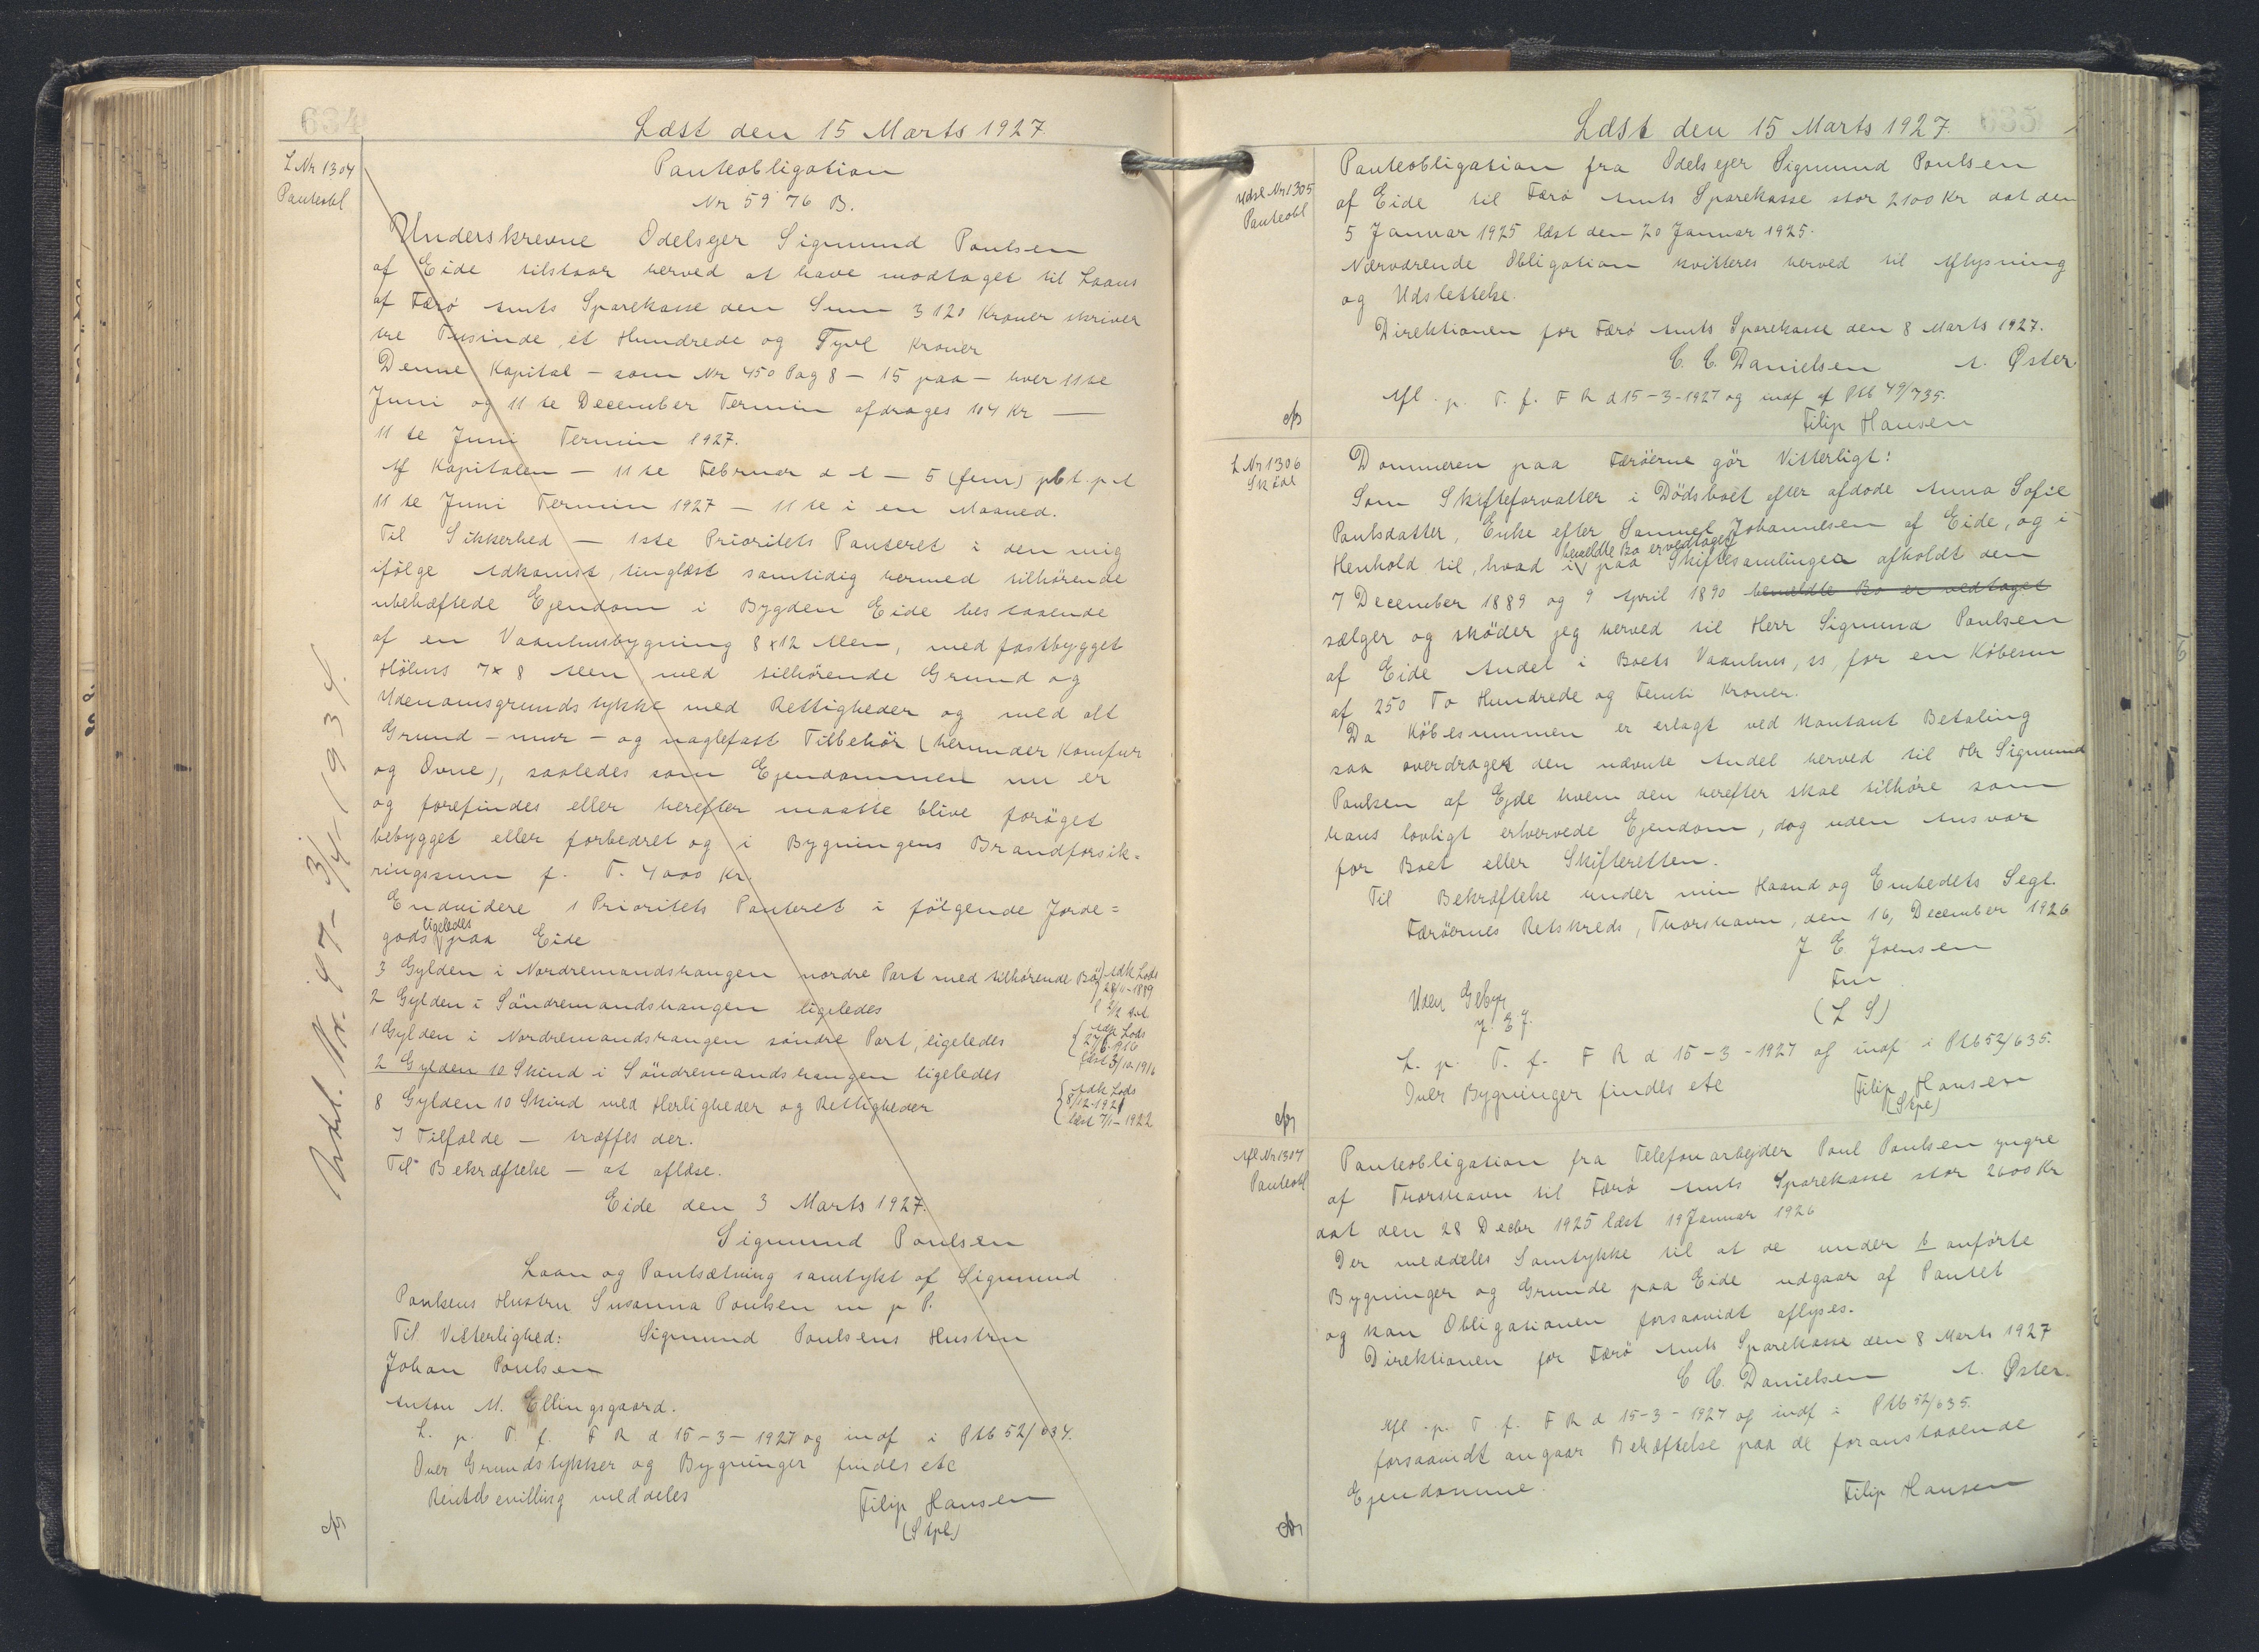 634
Læst den 15 Marts 1927.
L Nr 1304
Panteobl
Panteobligation
Nr 5976 B.
Underskrevne Odelsejer Sigmund Poulsen
af Eide tilstaar herved at have modtaget til Laans
af Færø Amts Sparekasse den Sum 3120 Kroner skriver
tre Tusinde, et Hundrede og Tyve Kroner
Denne Kapital - som Nr 450 Pag 8 - 15 paa - hver 11te
Juni og 11te December Termin afdrages 104 Kr —
11te Juni Termin 1927.
Af Kapitalen - 11te Februar d A - 5 (fem) pCt. p A
11te Juni Termin 1927 - 11te i en Maaned.
Til Sikkerhed - 1ste Prioritets Panteret i den mig
ifølge Adkomst, tinglæst samtidig hermed tilhørende
ubehæftede Ejendom i Bygden Eide bestaaende
af en Vaanhusbygning 8 x 12 Alen, med fastbygget
Höhus 7 x 8 Alen med tilhørende Grund og
Udenomsgrundstykke med Rettigheder og med alt
Grund - mur - og naglefast Tilbehør (herunder Komfur
og Ovne), saaledes som Ejendommen nu er
og forefindes eller herefter maatte blive forøget
bebygget eller forbedret og i Bygningens Brandforsik=
ringssum f. T. 4000 Kr.
Endvidere 1 Prioritets Panteret i følgende Jorde=
gods ligeledes paa Eide
3 Gylden i Nordremandshaugen nordre Part med tilhørende Bø } Adk Lods
28/11-1889
2 Gylden i Söndremandshaugen ligeledes
1 Gylden i Nordremandshaugen søndre Part, ligeledes { Adk Lods
27/6-1916
læst 3/10-1916
2 Gylden 10 Skind i Söndremandshaugen ligeledes
8 Gylden 10 Skind med Herligheder og Rettigheder { Adk Lods
8/12-1921
læst 7/1-1922
I Tilfælde - træffes der.
Til Bekræftelse - at aflæse.
Eide den 3 Marts 1927.
Sigmund Poulsen
Laan og Pantsætning samtykt af Sigmund
Poulsens Hustru Susanna Poulsen m p P.
Til Vitterlighed: Sigmund Poulsens Hustru
Johan Poulsen
Anton M. Ellingsgaard.
L. p. T. f. F R d 15-3-1927 og indf i Ptb 52/634.
Over Grundstykker og Bygninger findes etc
Rentebevilling meddeles
Filip Hansen
(Stpl)
Udsl. Nr. 97- 3/4 1934.
635
Læst den 15 Marts 1927.
Udsl Nr 1305
Panteobl
Panteobligation fra Odelsejer Sigmund Poulsen
af Eide til Færø Amts Sparekasse stor 2100 Kr dat den
5 Januar 1925 læst den 20 Januar 1925.
Nærværende Obligation kvitteres herved til Aflysning
og Udslettelse.
Direktionen for Færø Amts Sparekasse den 8 Marts 1927.
C. C. Danielsen A. Øster
Afl. p. T. f. F R d 15-3-1927 og indf af Ptb 49/735.
Filip Hansen
L Nr 1306
Skøde
Dommeren paa Færøerne gør Vitterligt:
Som Skifteforvalter i Dödsboet efter afdøde Anna Sofie
Poulsdatter, Enke efter Sammel Johannesen af Eide, og i
Henhold til, hvad i bemeldte Bo er vedtaget paa Skiftesamlinger afholdt den
7 December 1889 og 9 April 1890 bemeldte Bo er vedtaget
sælger og skøder jeg herved til Herr Sigmund Poulsen
af Eide Andel i Boets Vaanhus, 11, for en Købesum
af 250 To Hundrede og Femti Kroner.
Da Købesummen er erlagt ved Kontant Betaling
saa overdrages den nævnte Andel herved til Hr Sigmund
Poulsen af Ejde hvem den herefter skal tilhøre som
hans lovligt erhvervede Ejendom, dog uden Ansvar
for Boet eller Skifteretten.
Til Bekræftelse under min Haand og Embedets Segl.
Færøernes Retskreds, Thorshavn, den 16, December 1926
J E Joensen
Fm
(L S)
Uden Gebyr
J. E J.
L. p. T. f. F R d 15-3-1927 og indf i Ptb 52/635.
Over Bygninger findes etc
Filip Hansen
(Stpl)
Afl Nr 1307
Panteobl
Panteobligation fra Telefonarbejder Poul Poulsen yngre
af Thorshavn til Færø Amts Sparekasse stor 2600 Kr
dat den 28 Decbr 1925 læst 19 Januar 1926
Der meddeles Samtykke til at de under b anførte
Bygninger og Grunde paa Eide udgaar af Pantet
og kan Obligationen forsaavidt aflyses.
Direktionen for Færø Amts Sparekasse den 8 Marts 1927
C C. Danielsen A. Øster.
Afl. p. T f. F R d 15-3-1927 og indf i Ptb 52/635.
forsaavidt angaar Bekræftelse paa de foranstaaende
Ejendomme.
Filip Hansen